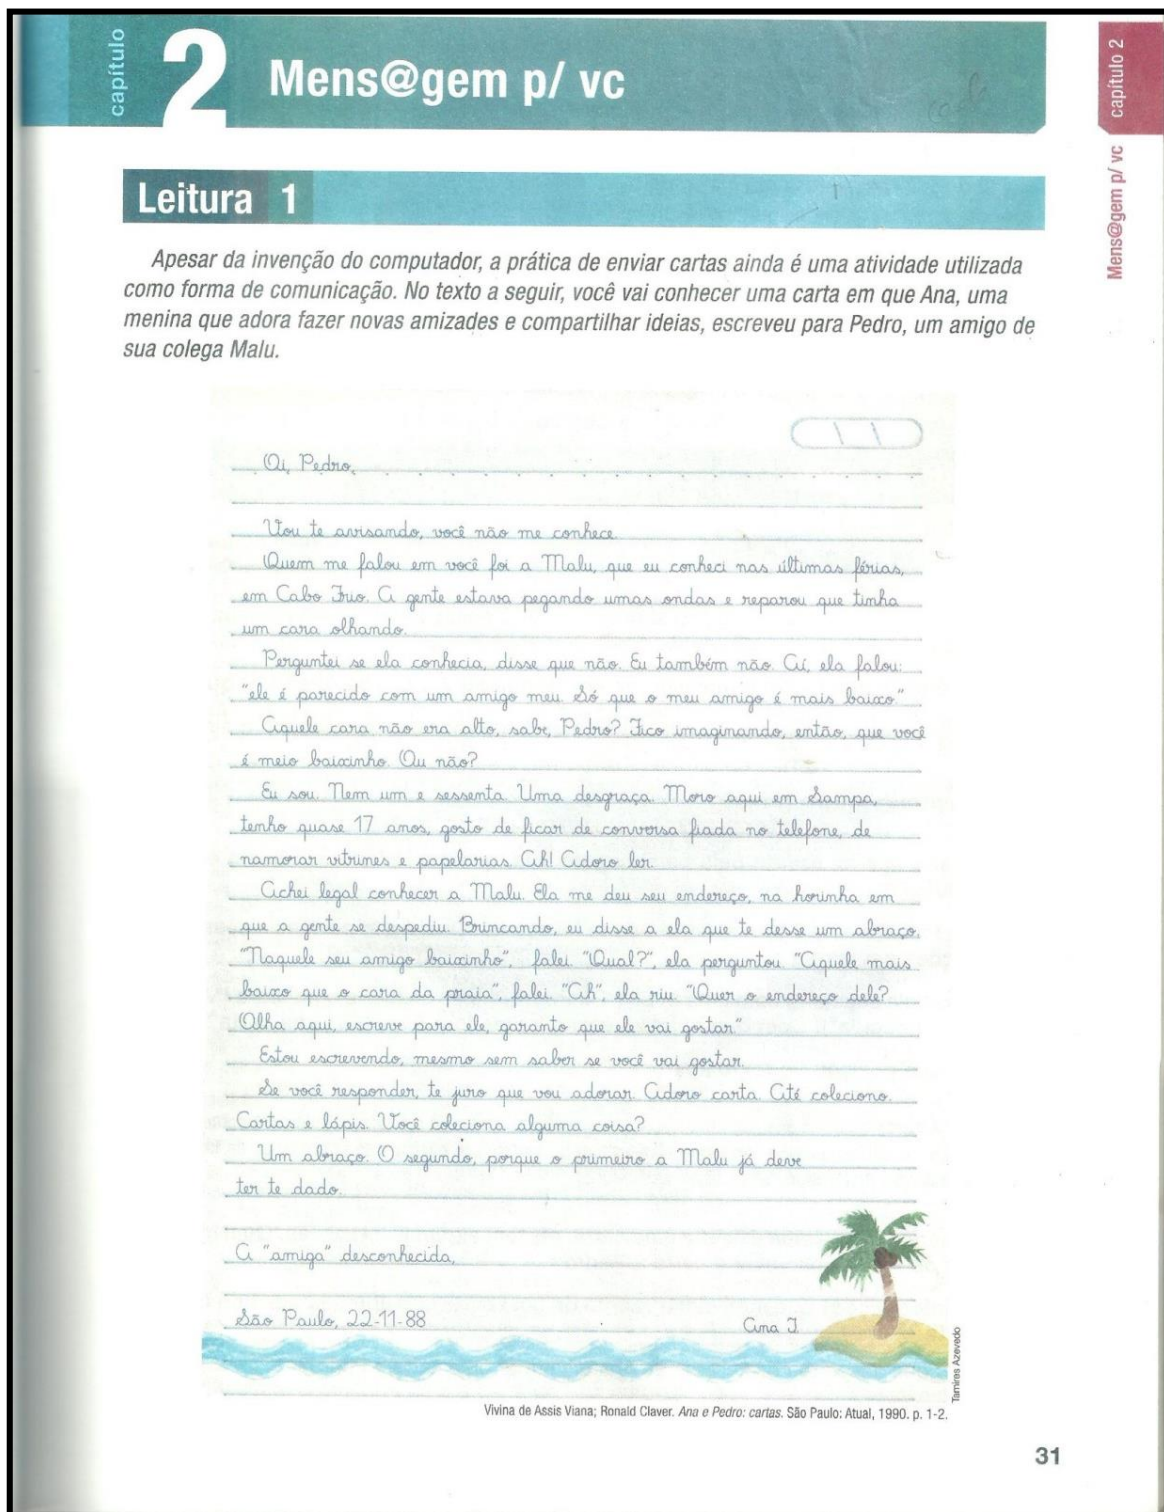 capítulo
2
Mens@gem p/ vc
capítulo 2
Mens@gem p/ vc
Leitura 1
Apesar da invenção do computador, a prática de enviar cartas ainda é uma atividade utilizada
como forma de comunicação. No texto a seguir, você vai conhecer uma carta em que Ana, uma
menina que adora fazer novas amizades e compartilhar ideias, escreveu para Pedro, um amigo de
sua colega Malu.
Oi, Pedro,
Vou te avisando, você não me conhece.
Quem me falou em você foi a Malu, que eu conheci nas últimas férias,
em Cabo Frio. A gente estava pegando umas ondas e reparou que tinha
um cara olhando.
Perguntei se ela conhecia, disse que não. Eu também não. Aí, ela falou:
"ele é parecido com um amigo meu. Só que o meu amigo é mais baixo"
Aquele cara não era alto, sabe, Pedro? Fico imaginando, então, que você
é meio baixinho. Ou não?
Eu sou. Nem um e sessenta. Uma desgraça. Moro aqui em Sampa,
tenho quase 17 anos, gosto de ficar de conversa fiada no telefone, de
namorar vitrines e papelarias. Ah! Adoro ler.
Achei legal conhecer a Malu. Ela me deu seu endereço, na horinha em
que a gente se despediu. Brincando, eu disse a ela que te desse um abraço.
"Naquele seu amigo baixinho", falei. "Qual?", ela perguntou. "Aquele mais
baixo que o cara da praia", falei. "Ah", ela riu. "Quer o endereço dele?
Olha aqui, escreve para ele, garanto que ele vai gostar"
Estou escrevendo, mesmo sem saber se você vai gostar.
Se você responder, te juro que vou adorar. Adoro carta. Até coleciono.
Cartas e lápis. Você coleciona alguma coisa?
Um abraço. O segundo, porque o primeiro a Malu já deve
ter te dado.
A "amiga" desconhecida,
São Paulo, 22-11-88
Ana J
Tamires Azevedo
Vivina de Assis Viana; Ronald Claver. Ana e Pedro: cartas. São Paulo: Atual, 1990. p. 1-2.
31